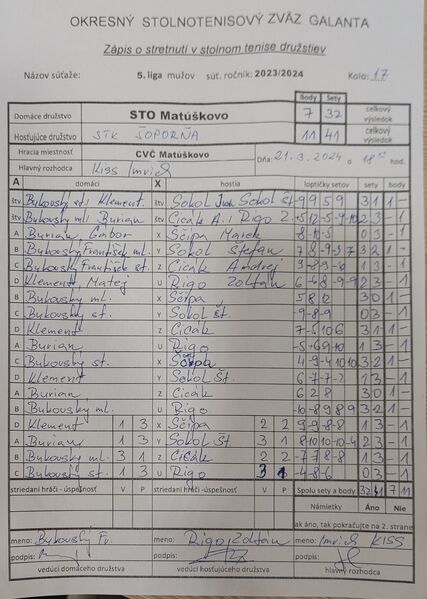 OKRESNÝ STOLNOTENISOVÝ ZVÄZ GALANTA
Zápis o stretnutí v stolnom tenise družstiev
Názov súťaže: 5. liga mužov súť. ročník: 2023/2024 Kolo: 17
Body Sety
Domáce družstvo STO Matúškovo 7 32 celkový výsledok
Hosťujúce družstvo STK ŠOPORŇA 11 41 celkový výsledok
Hracia miestnosť CVČ Matúškovo Dňa: 21.3.2024 o 18 hod.
Hlavný rozhodca Kiss Imrich
A domáci X hostia loptičky setov sety body
štv Bukovský Klement štv Sokol Sokol Št. -9 9 5 9 3 1 1 -
štv Bukovský ml. Burian štv Cicák A. Rigo Z. 2 3 - 1
A Burian Gábor X Ščipa Marek 0 3 - 1
B Bukovský František ml. Y Sokol Štefan 3 2 1 -
C Bukovský František st. Z Cicák Andrej 1 3 - 1
D Klement Matej U Rigo Zoltán 2 3 - 1
B Bukovský ml. X Ščipa 5 8 12 3 0 1 -
C Bukovský st. Y Sokol Št. -9 -8 -9 0 3 - 1
D Klement Z Cicák 3 1 1 -
A Burian U Rigo 1 3 - 1
C Bukovský st. X Ščipa 3 2 1 -
D Klement Y Sokol Št. 1 3 - 1
A Burian Z Cicák 6 2 8 3 0 1 -
B Bukovský ml. U Rigo -10 -8 9 8 9 3 2 1 -
D Klement 1 3 X Ščipa 2 2 1 3 - 1
A Burian 1 3 Y Sokol Št. 3 1 2 3 - 1
B Bukovský ml. 3 1 Z Cicák 2 2 1 3 - 1
C Bukovský st. 1 3 U Rigo 3 1 -4 -8 -6 0 3 - 1
striedaní hráči - úspešnosť V P striedaní hráči - úspešnosť V P Spolu sety a body 32 41 7 11
Námietky Áno Nie
ak áno, tak pokračujte na 2. strane
meno: Bukovský Fr. meno: Rigo Zoltán meno: Imrich KISS
podpis: podpis: podpis:
vedúci domáceho družstva vedúci hosťujúceho družstva hlavný rozhodca